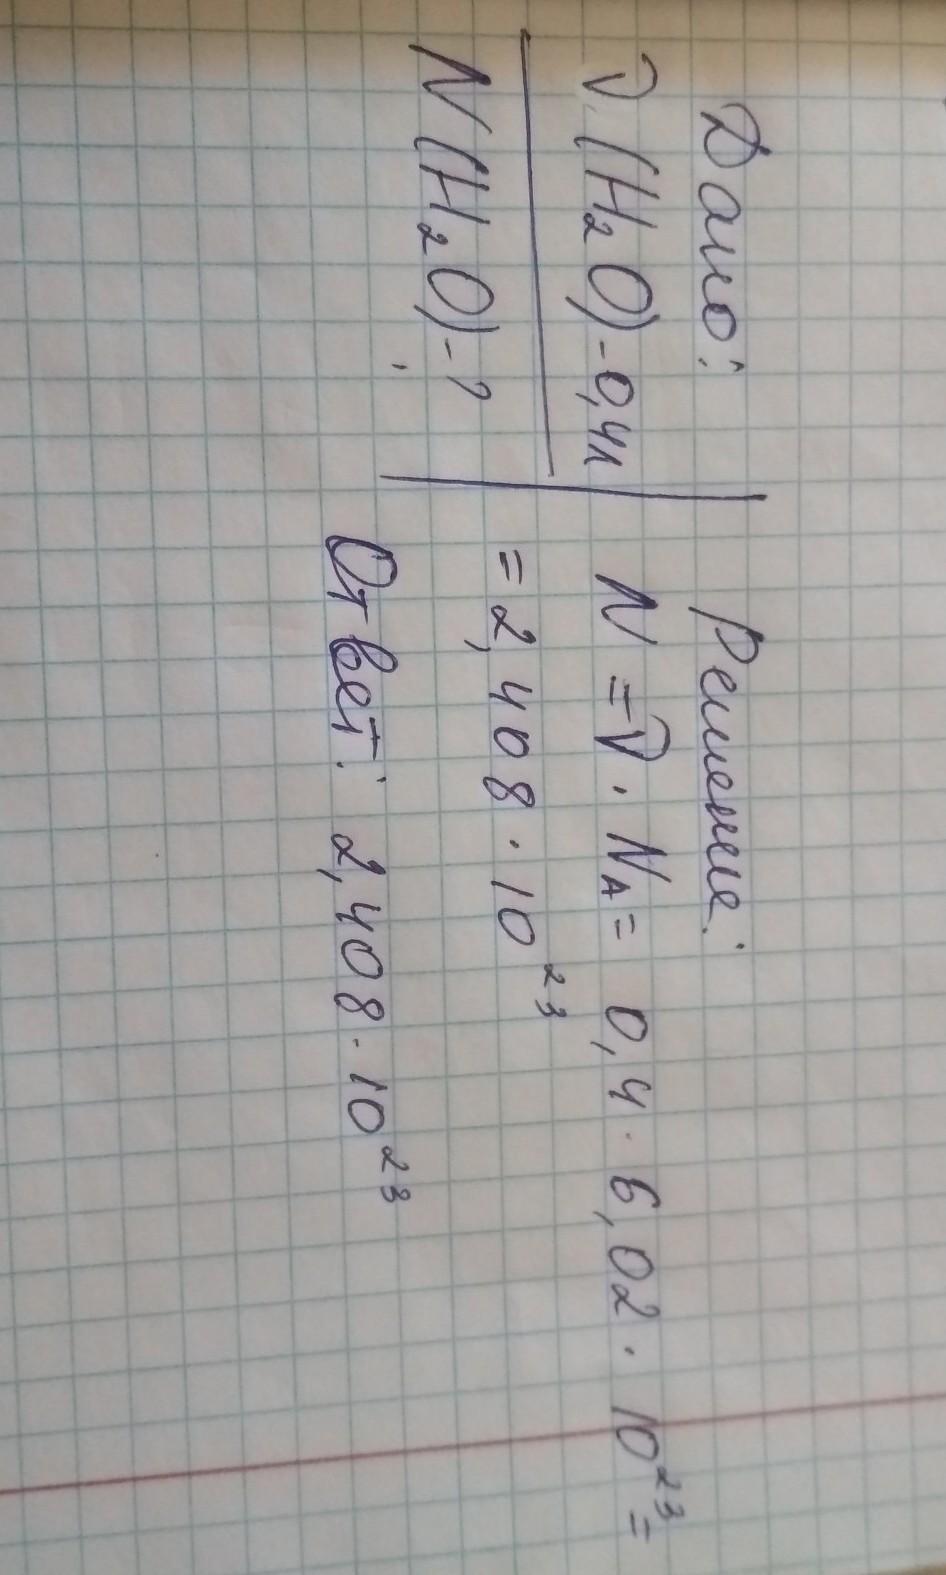 Дано:
ν(H₂O)-0,4л
N(H₂O)-?
Решение:
N = ν · Nᴀ = 0,4 · 6,02 · 10²³ =
= 2,408 · 10²³
Ответ: 2,408 · 10²³